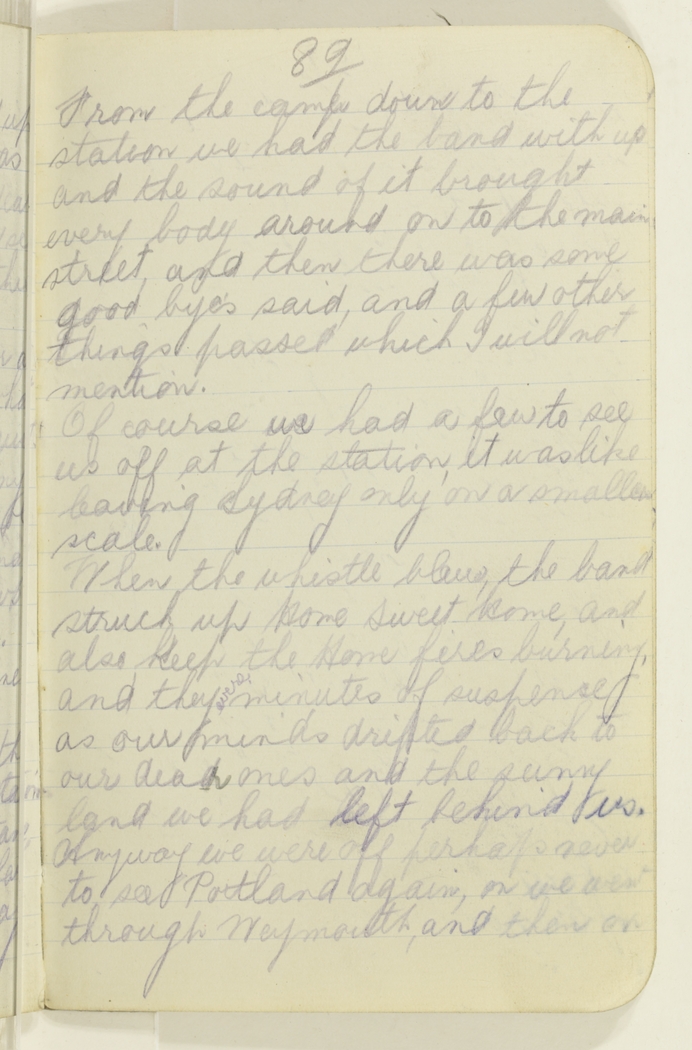 89
From the camp down to the
station we had the band with up
and the sound of it brought
every body around on to the main
street, and then there was some
good bye's said, and a few other
things passed which I will not
mention.
Of course we had a few to see
us off at the station, it was like
leaving Sydney only on a smaller
scale.
When the whistle blew, the band
struck up Home Sweet Home, and
also Keep the Home fires burning,
and they were minutes of suspense
as our minds drifted back to
our dear ones and the sunny
land we had left behind us.
Anyway we were off perhaps never
to see Portland again, on we went
through Weymouth, and then on